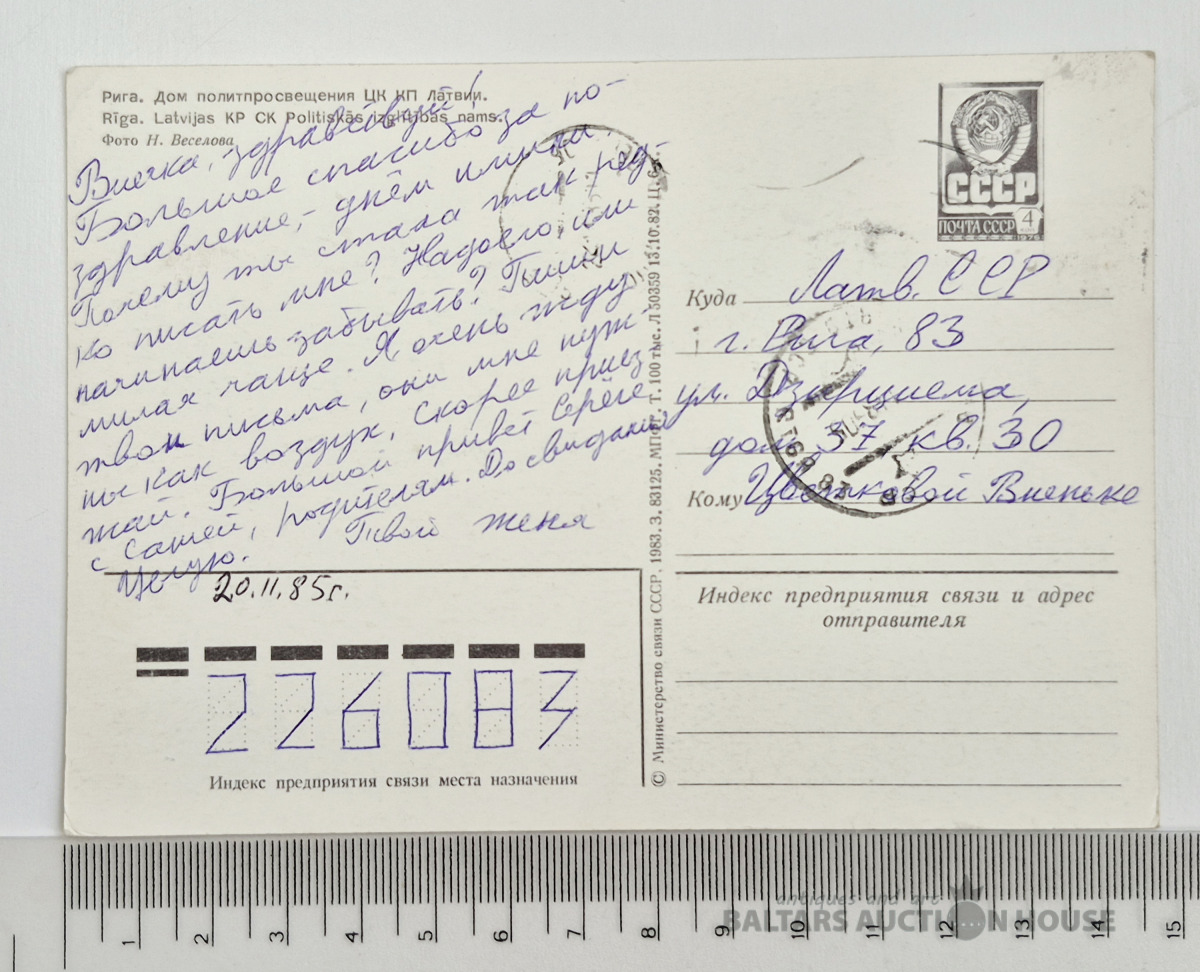 Рига. Дом политпросвещения ЦК КП Латвии.
Rīga. Latvijas KP CK Politiskās izglītības nams.
Фото Н. Веселова
здравствуй!
Большое спасибо за по-
здравление, днём имении.
Почему ты стала так ред-
ко писать мне? Надоело или
начинаешь забывать? Пиши
милая чаще. Я очень жду
твои письма, они мне нуж-
ны как воздух. Скорее приез
жай. Большой привет Серёге
с Сашей, родителям. До свидания
Целую. Твой Женя
20.11.85г.
226083
Индекс предприятия связи места назначения
© Министерство связи СССР. 1983. З. 83125. МПФГ. Т. 100 тыс. Л 50359 13.10.82. Ц. 6
СССР
ПОЧТА СССР 4
1976
Куда Латв. ССР
г. Рига, 83
ул. Дзирциема,
дом 57 кв. 30
Кому Цветковой
Индекс предприятия связи и адрес
отправителя
1 2 3 4 5 6 7 8 9 10 11 12 13 14 15
antiques and art
BALTARS AUCTION HOUSE